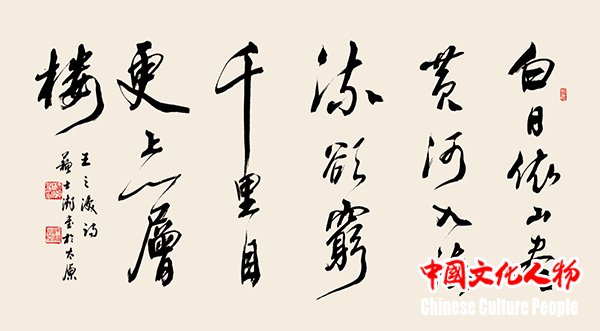 白日依山尽
黄河入海
流欲窮
千里目
更上一層
楼
王之涣诗
蘇士澍书於太原
中國文化人物
Chinese Culture People